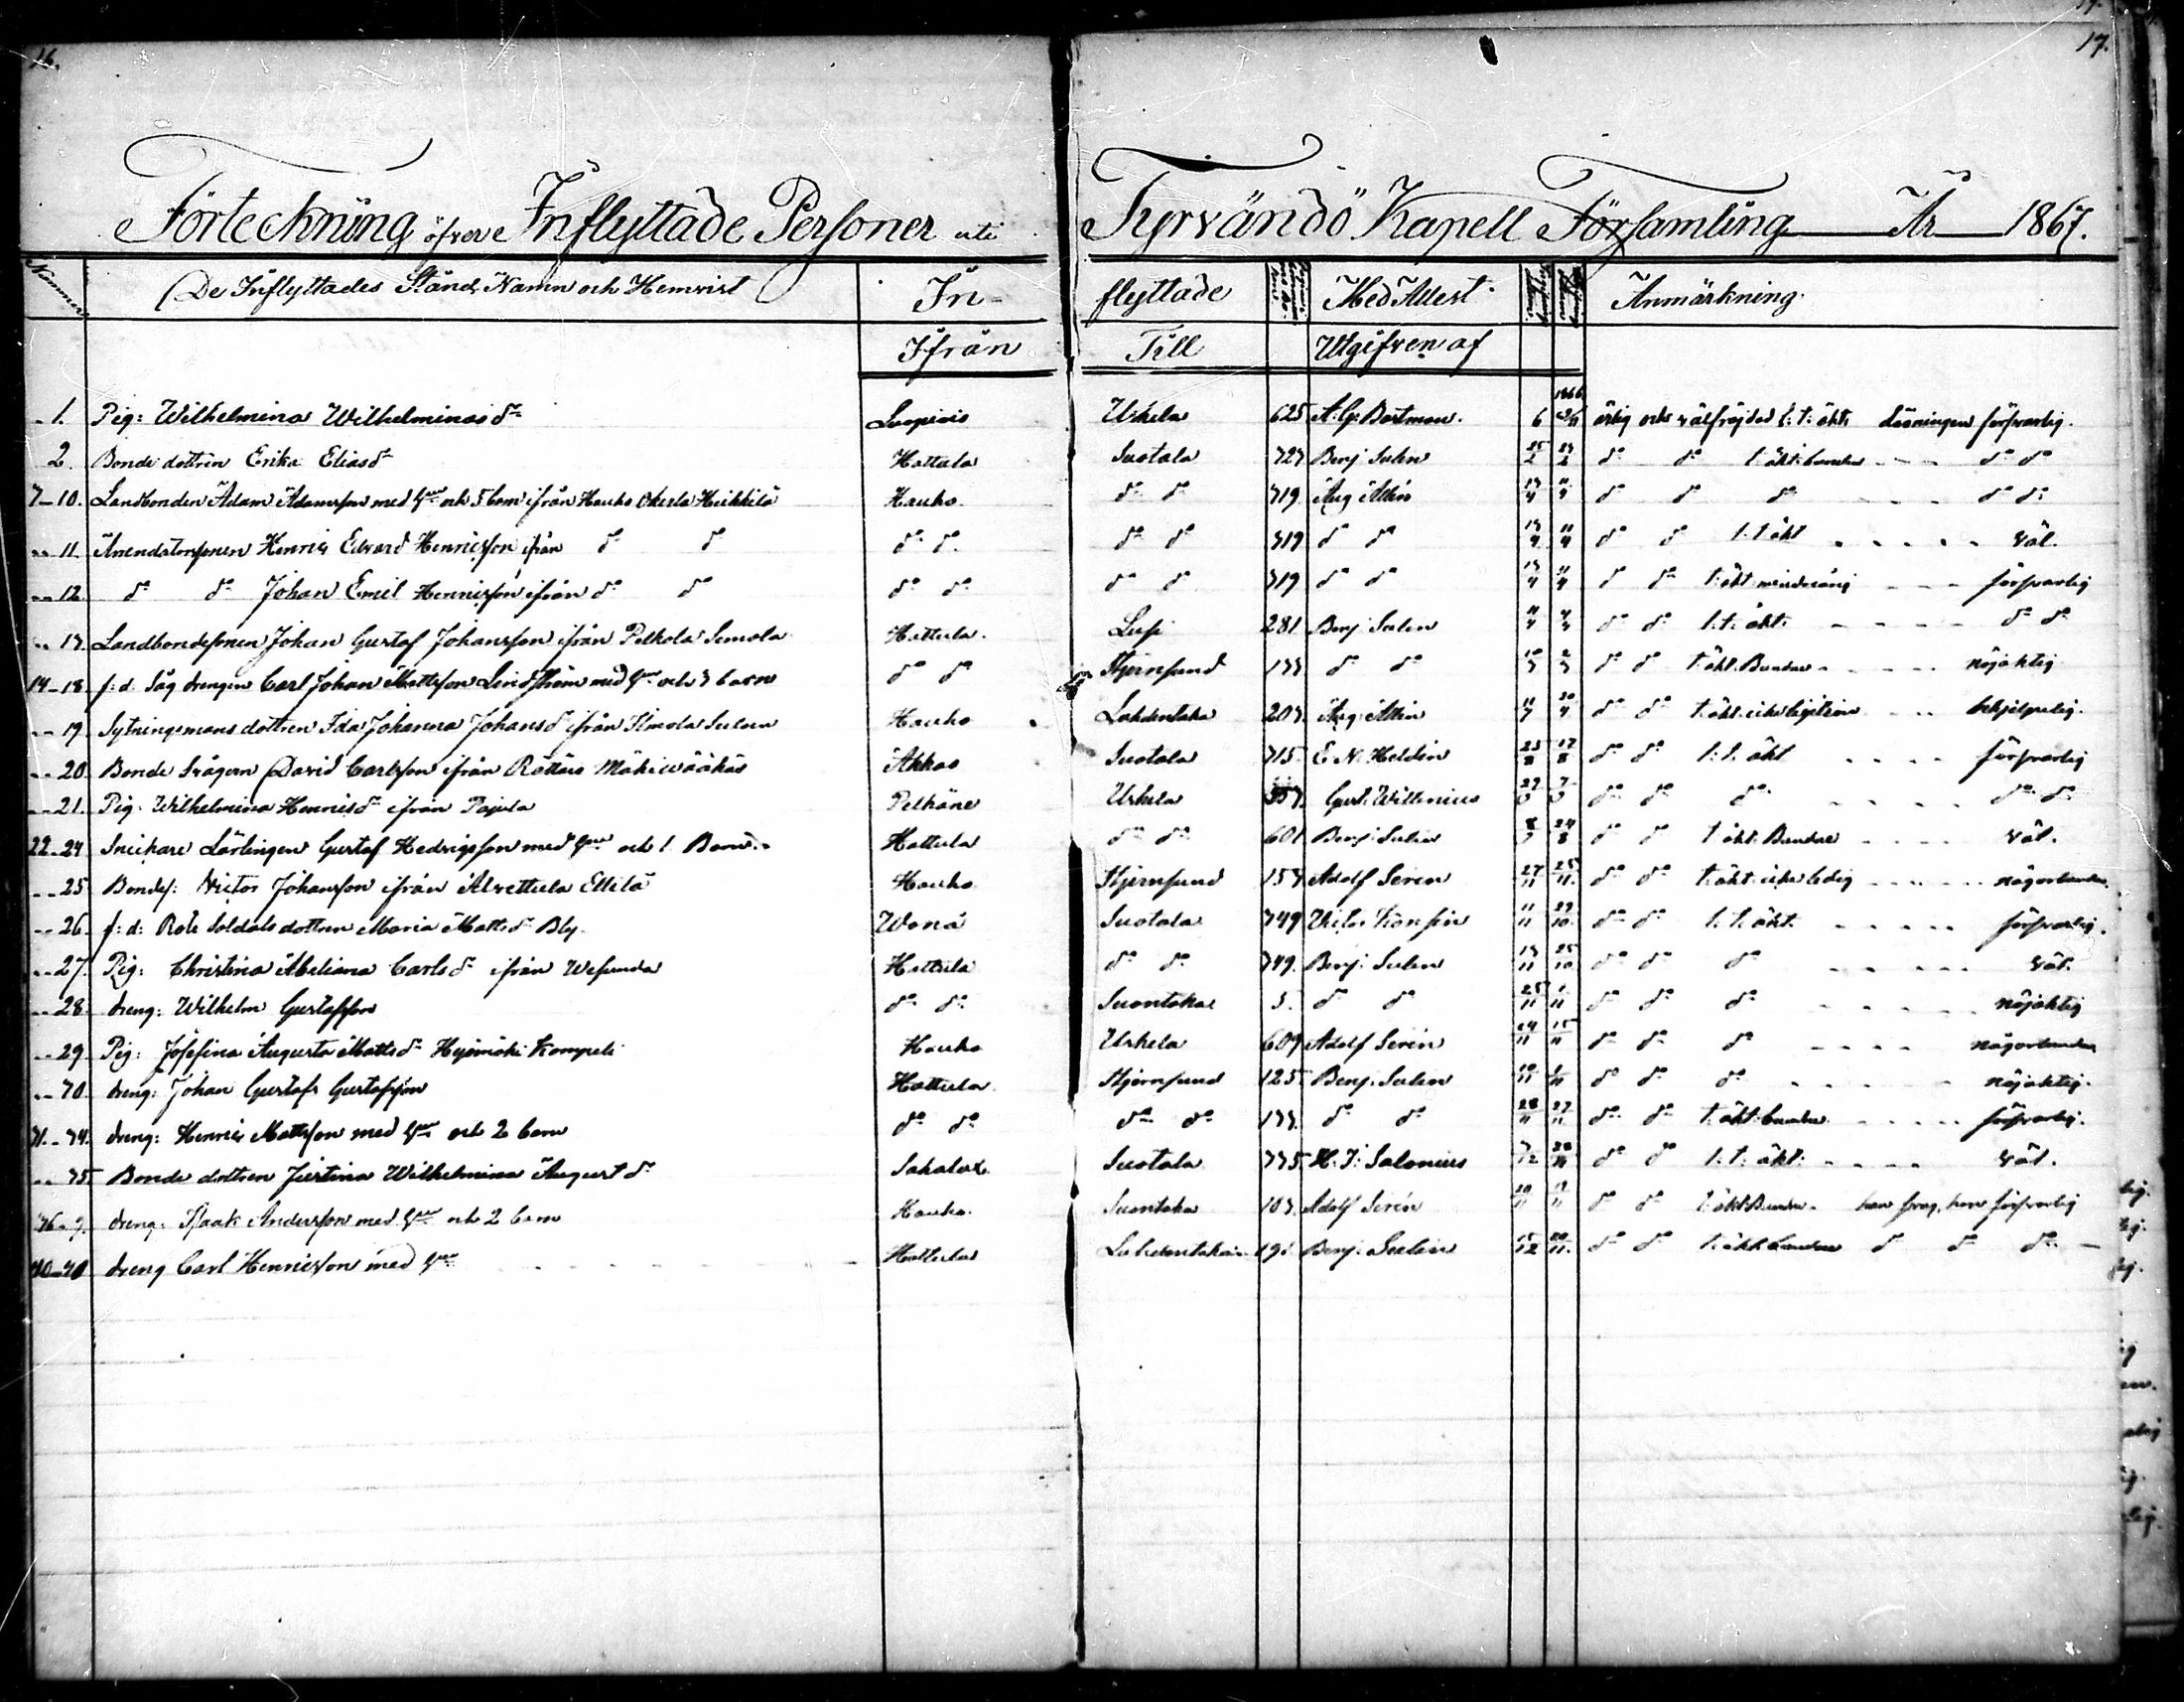 16.
17.
Förteckning öfver Inflyttade Personer uti Tyrvändö Kapell Församling År 1867.
Nummer De Inflyttades Stånd, Namn och Hemvist In- flyttade Med Attest Anmärkning.
Ifrån Till Utgifven af
1866
1. Pig: Wilhelmina Wilhelminasdr Luopiois Uskela 625 A. G. Bastman. 6 ärlig och välfrejdad l: t: äkt. Läsningen försvarlig.
2. Bonde dottren Erika Eliasdr Hattula Suotala 727 Benj Salen 25/2 do do t: äkt: bandne do do
7–10. Landbonden Adam Adamsson med Hu och 5 barn ifrån Hauho Okerla Heikkilä Hauho. do do 719 Aug Allén 13/4 11/4 do do do do do
11. Arendatorsonen Henric Edvard Henricsson ifrån do do do do. do do 719 do do 13/4 11/4 do do l. t. äkt väl.
12. do do Johan Emil Henricsson ifrån do do do do. do do 719 do do 13/4 11/4 do do t: äkt. minderårig försvarlig
13. Landbondesonen Johan Gustaf Johansson ifrån Pelkola Simola Hattula. Lusi 281 Benj Salen do do l. t: äkt. do do
14–18 f: d: Dräg drengen Carl Johan Mattsson Lindström med Hu och 3 barn do do Stjernsund 133 do do do do t: äkt. Bandne nöjaktig
19 Sytningsmans dottren Ida Johanna Johansdr ifrån Hauho Lahdentaka 203. Aug. Allén do do t: äkt. icke begifven behjelpelig.
20. Bonde Svågern David Carlsson ifrån Rättäis Mäkiwääkäs Akkas Suotala 715. E. N. Heldén 23/8 17/8 do do l: t. äkt försvarlig
21. Pig. Wilhelmina Henricsdr ifrån Pajula Pelkäne Uskela 557. Gust. Willenius do do do do do.
22–24 Snickare Lärlingen Gustaf Hedvigsson med Hu och 1 Barn. Hattula do do 601 Benj: Salen do do t: äkt: Bandne väl.
25 Bondes: Victor Johansson ifrån Alvettula Ellilä Hauho. Stjernsund 153 Adolf Serén 27/11 25/11. do do t: äkt. icke ledig någorlunda.
26. f: d: Rote Soldats dottren Maria Mattsdr Bly. Wånå Suotala 749 Victor 11/11 29/10. do do l. t. äkt. försvarlig.
27. Pig: Christina Abeliana Carlsdr ifrån Wesunda Hattula do do. 749. Benj. Salen 13/11 25/10 do do do väl.
28. dreng: Wilhelm Gustafsson do do. Suontaka 5. do do 25/11 do do do nöjaktig
29. Pig: Josefina Augusta Mattsdr Hyömäki Kompeli Hauho Uskela 609 Adolf Serén 24/11 15/11 do do do någorlunda
30. dreng: Johan Gustaf Gustafsson Hattula. Stjernsund 125. Benj. Salen do do do nöjaktig.
31.–34. dreng: Henric Mattsson med Hu och 2 barn do do. do do 133. do do 28/11 27/11 do do t. äkt. bandne försvarlig.
35 Bonde dottren Justina Wilhelmina Augustdr Sahalax. Suotala 775. H. J. Salonius do do l: t: äkt: väl.
36– dreng: Isaak Andersson med Hu och 2 barn Hauho. Suontaka 103. Adolf Serén do do t: äkt Bandne. han svag, hon försvarlig
dreng Carl Henricsson med Hu Hattula Lahdentaka 191. Benj. Salen 15/12 do do t: äkt bandne do do do